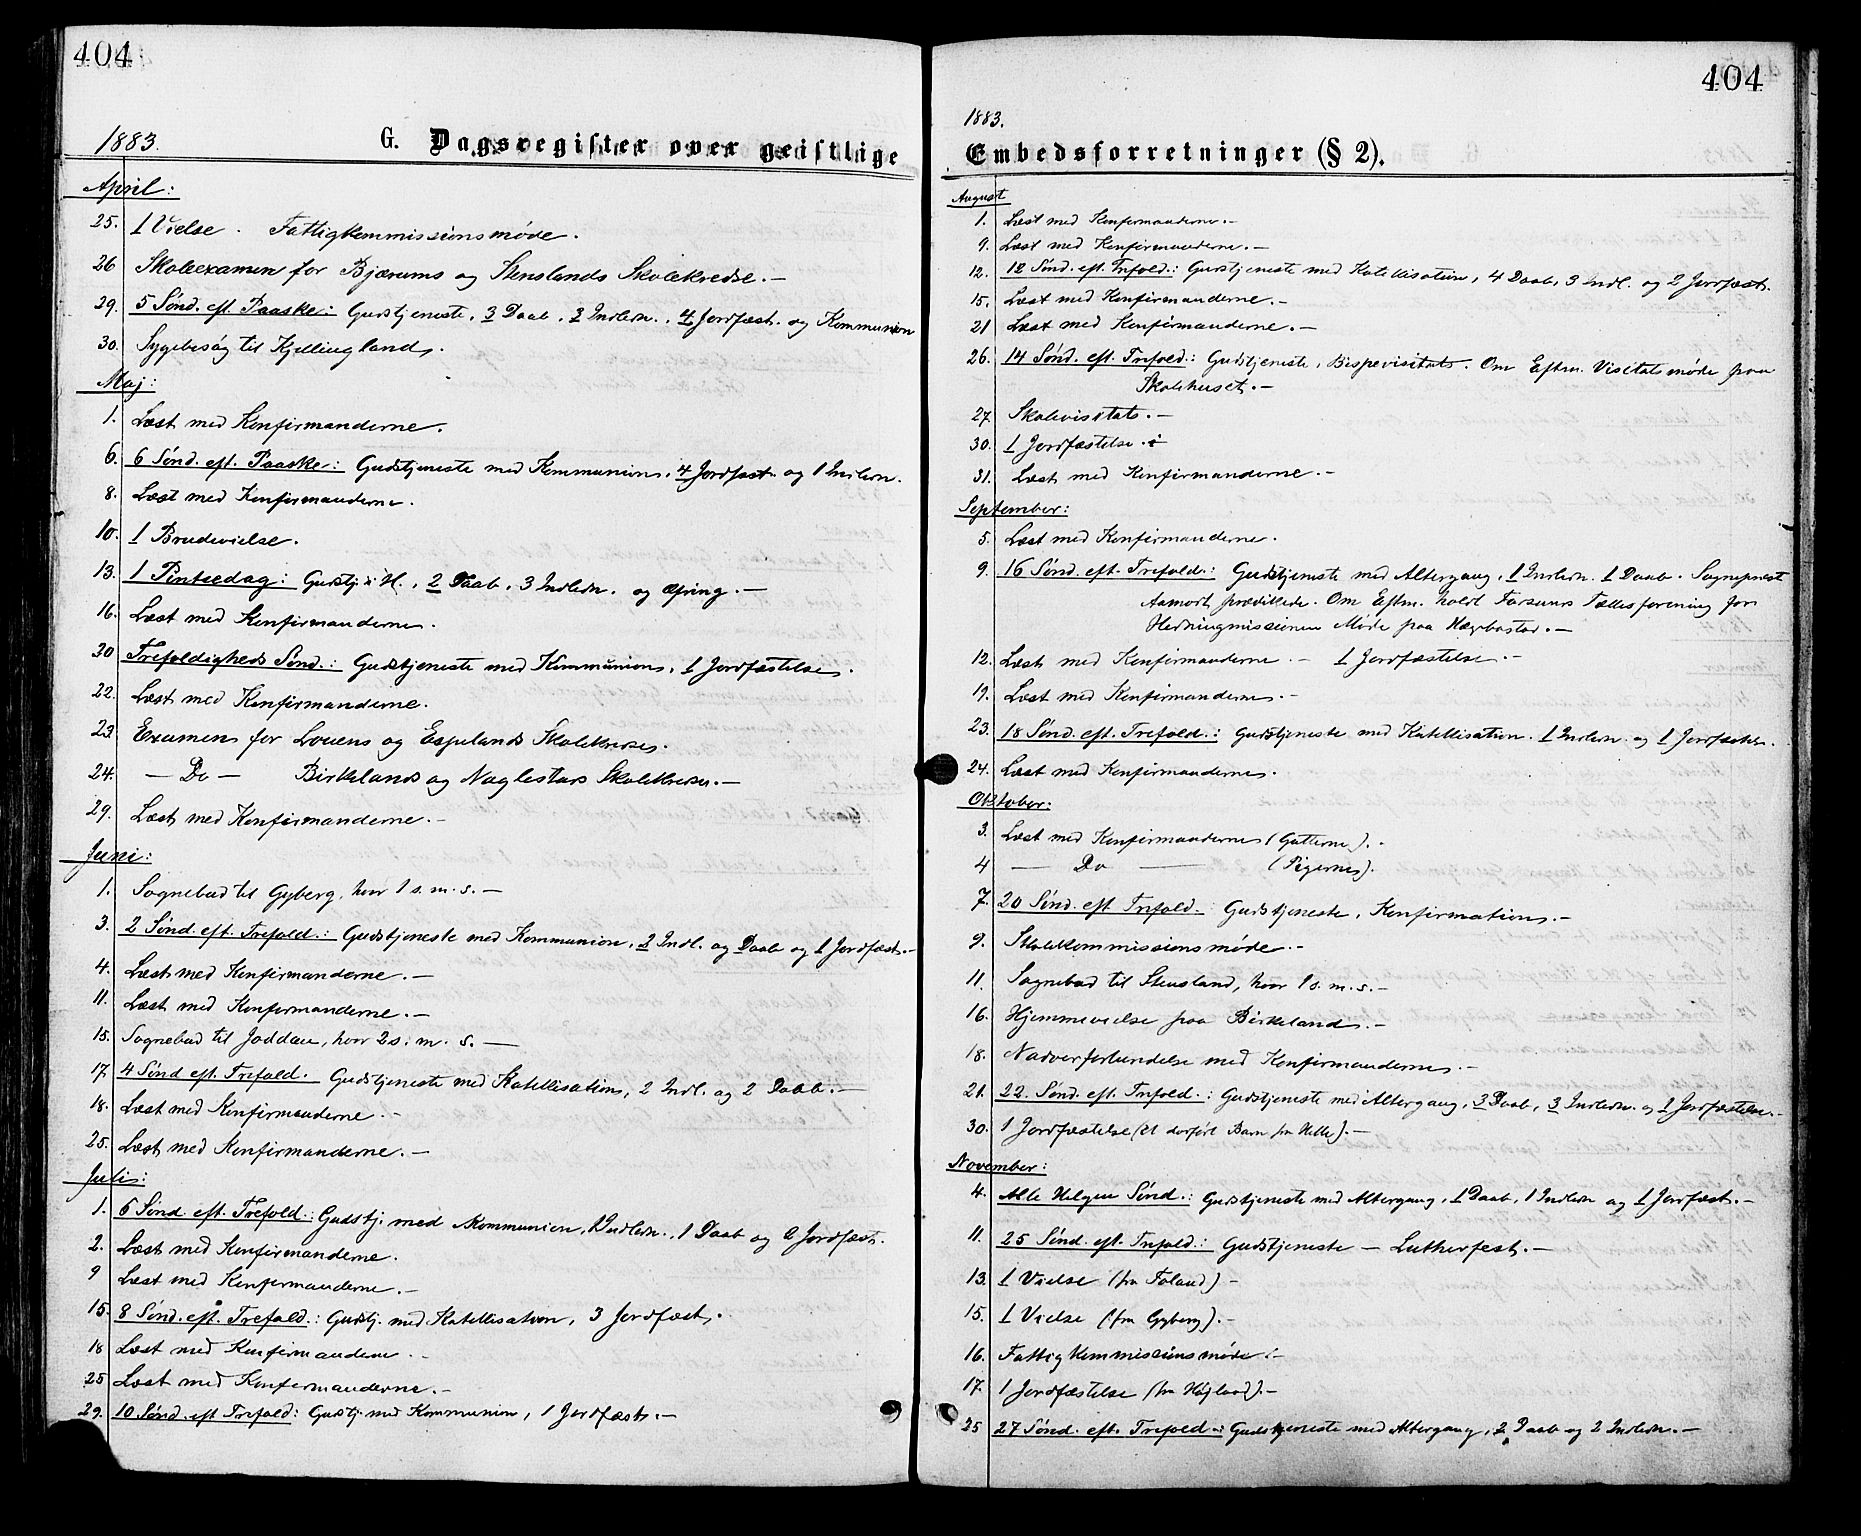 404
1883.
G. Dagsregister over geistlige
April:
25. 1 Vielse. Fattigkommissionsmøde.
26 Skoleexamen for Bjærums og Stenslands Skolekredse.—
29. 5 Sønd. eft. Paaske: Gudstjeneste, 3 Daab, 3 Indledn., 4 Jordfæst. og Kommunion
30. Sygebesøg til Kjellingland.
Maj:
1. Læst med Konfirmanderne.
6. 6 Sønd. eft. Paaske: Gudstjeneste med Kommunion, 4 Jordfæst. og 1 Indledn.
8. Læst med Konfirmanderne.
10. 1 Brudevielse.
13. 1 Pintsedag: Gudstj. i H., 2 Daab, 3 Indledn. og Ofring.—
16. Læst med Konfirmanderne.
20 Trefoldigheds Sønd.: Gudstjeneste med Kommunion, 1 Jordfæstelse.
22. Læst med Konfirmanderne.
23. Examen for Louens og Espelands Skolekredse.
24. — Do — Birkelands og Naglestads Skolekredse.—
29. Læst med Konfirmanderne.—
Juni:
1. Sognebud til Gyberg, hvor 1 s. m. s.—
3. 2 Sønd. eft. Trefold.: Gudstjeneste med Kommunion, 2 Indl. og Daab og 1 Jordfæst.—
4. Læst med Konfirmanderne.—
11. Læst med Konfirmanderne.—
15. Sognebud til Joddan, hvor 2 s. m. s.—
17. 4 Sønd eft. Trefold. Gudstjeneste med Katekisation, 2 Indl. og 2 Daab.—
18. Læst med Konfirmanderne.—
25. Læst med Konfirmanderne.—
Juli:
1. 6 Sønd. eft. Trefold.: Gudstj. med Kommunion, 1 Indledn., 1 Daab og 2 Jordfæst.
2. Læst med Konfirmanderne.
9 Læst med Konfirmanderne.—
15. 8 Sønd. eft. Trefold.: Gudstj. med Katekisation, 3 Jordfæst.
18 Læst med Konfirmanderne.—
25 Læst med Konfirmanderne.—
29. 10 Sønd. eft Trefold: Gudstj. med Kommunion, 1 Jordfæst.—
404
1883.
Embedsforretninger (§ 2).
August
1. Læst med Konfirmanderne.—
9. Læst med Konfirmanderne.—
12. 12 Sønd. eft. Trefold.: Gudstjeneste med Katekisation, 4 Daab, 3 Indl. og 2 Jordfæst.
15. Læst med Konfirmanderne.—
21 Læst med Konfirmanderne.—
26. 14 Sønd. eft. Trefold.: Gudstjeneste, Bispevisitats. Om Eftm. Visitatsmøde paa
Skolehuset.—
27. Skolevisitats.—
30. 1 Jordfæstelse.
31. Læst med Konfirmanderne.—
September:
5. Læst med Konfirmanderne.
9. 16 Sønd. eft. Trefold.: Gudstjeneste med Altergang, 1 Indledn. 1 Daab. Sogneprest
Aamodt prædikede. Om Eftm. holdt Farsunds Fællesforening for
Hedningmissionen Møde paa Hægbostad.—
12. Læst med Konfirmanderne.— 1 Jordfæstelse.—
19. Læst med Konfirmanderne.—
23. 18 Sønd. eft. Trefold.: Gudstjeneste med Katekisation. 1 Indledn. og 1 Jordfæstelse.
24. Læst med Konfirmanderne.
Oktober:
3. Læst med Konfirmanderne (Gutterne).
4 — Do — (Pigerne).
7. 20 Sønd. eft. Trefold.: Gudstjeneste, Konfirmation.—
9. Skolekommissionsmøde.—
11. Sognebud til Stensland, hvor 1 s. m. s.—
16. Hjemmevielse paa Birkeland.—
18. Nadverforbindelse med Konfirmanderne.—
21. 22. Sønd. eft. Trefold.: Gudstjeneste med Altergang, 3 Daab, 3 Indledn. og 1 Jordfæstelse.—
30. 1 Jordfæstelse (et dødfødt Barn fra Helle).—
November:
4. Alle Helgen Sønd.: Gudstjeneste med Altergang, 1 Daab, 1 Indledn og 1 Jordfæst.—
11. 25 Sønd. eft. Trefold.: Gudstjeneste — Lutherfest.—
13. 1 Vielse (fra Foland)—
15. 1 Vielse (fra Gyberg).—
16. Fattigkommissionsmøde.—
17. 1 Jordfæstelse (fra Højland).—
25 27 Sønd. eft. Trefold.: Gudstjeneste med Altergang, 2 Daab og 2 Indledn.—